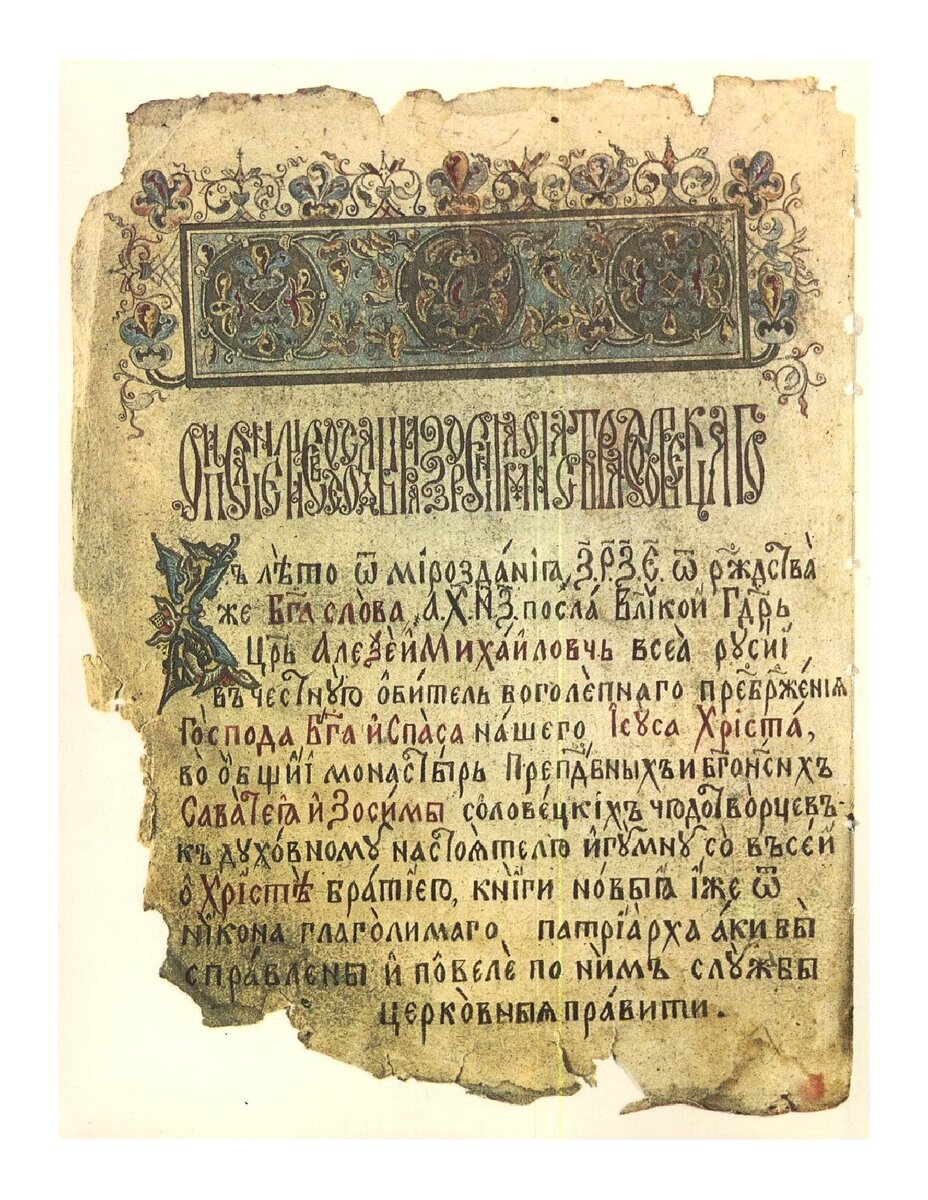 Въ лѣто ѿ мірозда́нїꙗ ҂З҃.Р҃.З҃.Є҃. ѿ рж҃дства̀
же Бг҃а сло́ва ҂А҃.Х҃.Н҃.З҃. посла́ Вели́кой Гд҃рь
Цр҃ь Алеѯе́й Миха́йловчь всеа̀ русиї
въ честную ѻби́тель боголѣпнаго преѡбрже́нїꙗ
Го́спода Бг҃а и҆ Спа́са на́шего І҆су́са Хріста́,
во ѻбщиї монасты́рь Препдбныхъ и бг҃оно́сныхъ
Сава́теꙗ и҆ Зоси́мы солове́цкїхъ чюдотво́рцевъ.
къ духо́вному настоѧ́телю и҆гу́мну со̀ въсе́й
ѻ Христѣ̀ бра́тїею, кни́ги но́выꙗ і҆́же ѿ
ни́кона глаго́лимаго патрїа́рха а́ки бы̀
спра́влены и҆ повелѐ по ни́мъ слу́жбы
церко́вныꙗ пра́вити.